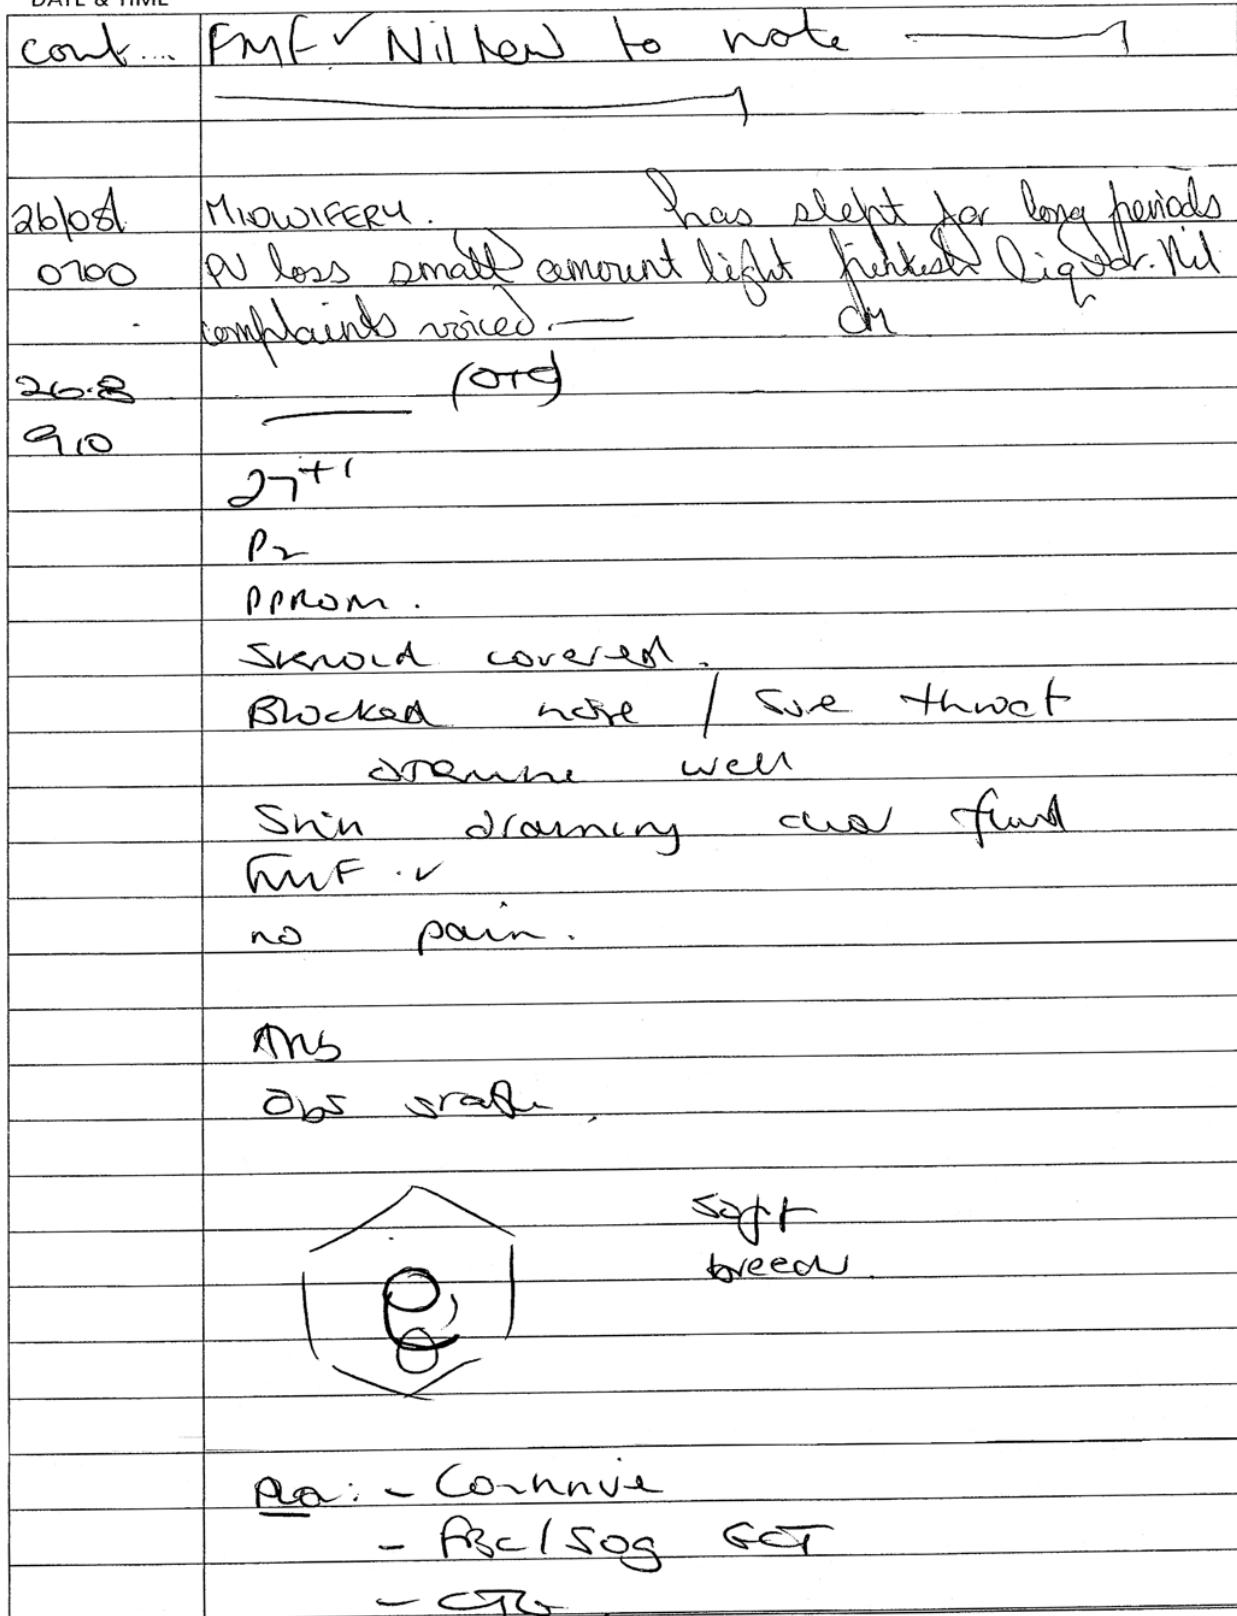 DATE & TIME
cont... FMF ✓ Nil new to note
26/08 MIDWIFERY. has slept for long periods
0700 PV loss small amount light pinkish liquor. Nil
complaints voiced.
26.8
910
27+1
P2
PPROM.
Steroid covered.
Blocked nose / Sore throat
otherwise well
Still draining clear fluid
FMF ✓
no pain.
Obs stable
soft
breech
Plan: - Continue
- FBC / 50g GCT
- CTG